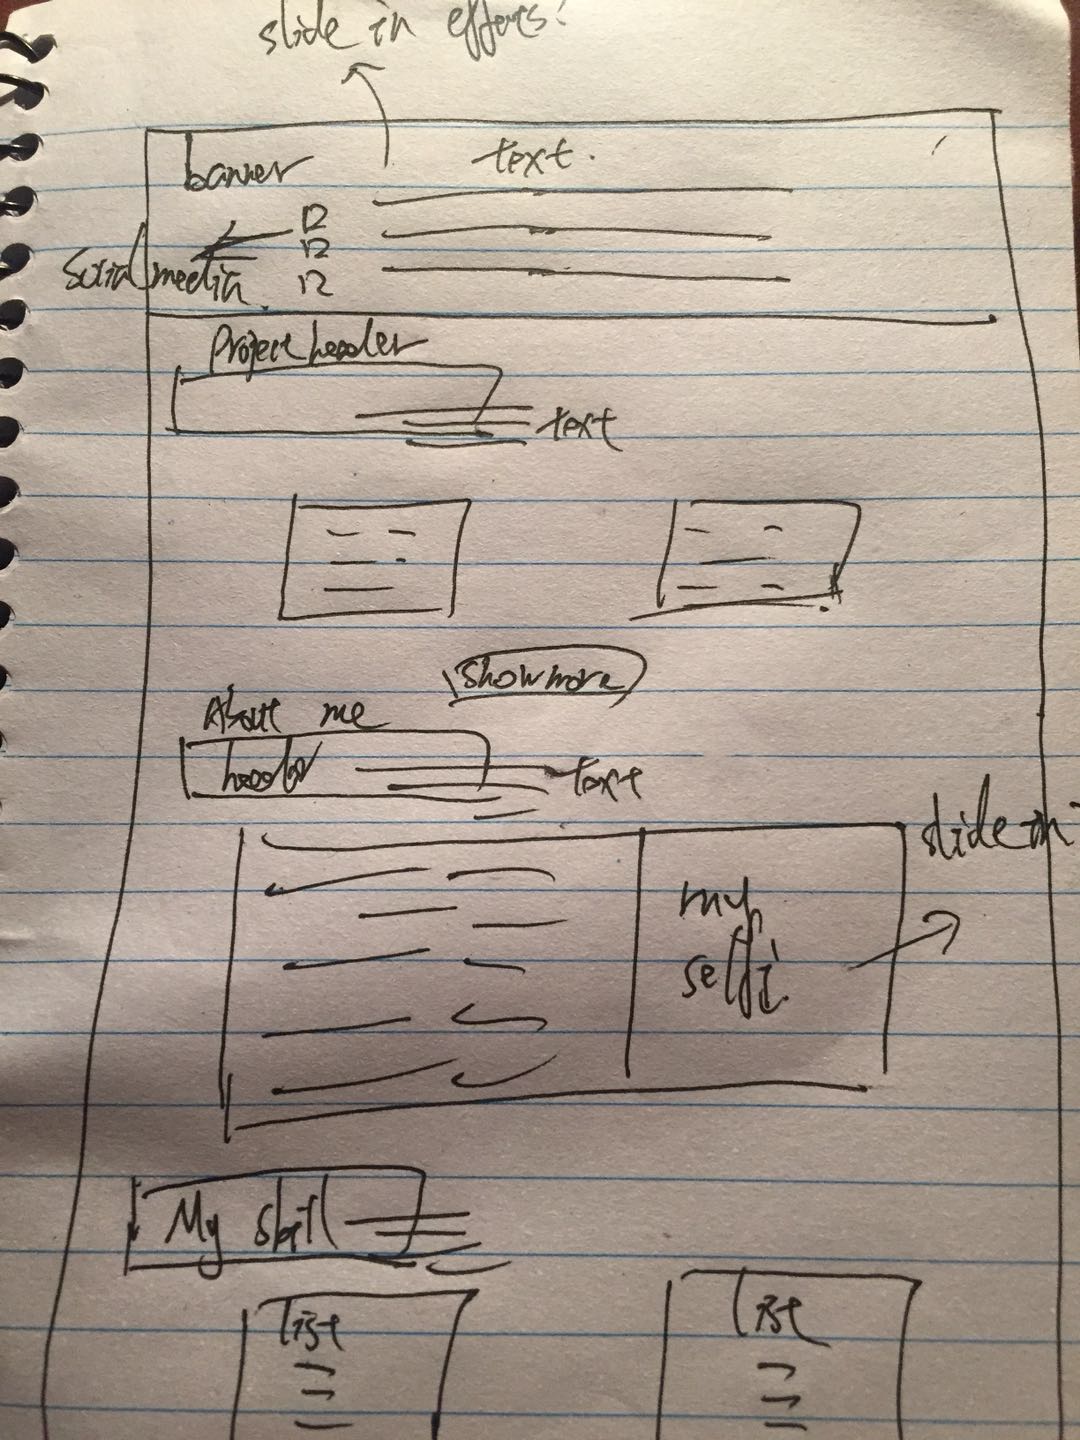 slide in effects!
banner
text.
Social media.
Project header
text
Show more
About me
header
text
slide in
my
selfi
My skill
list
list